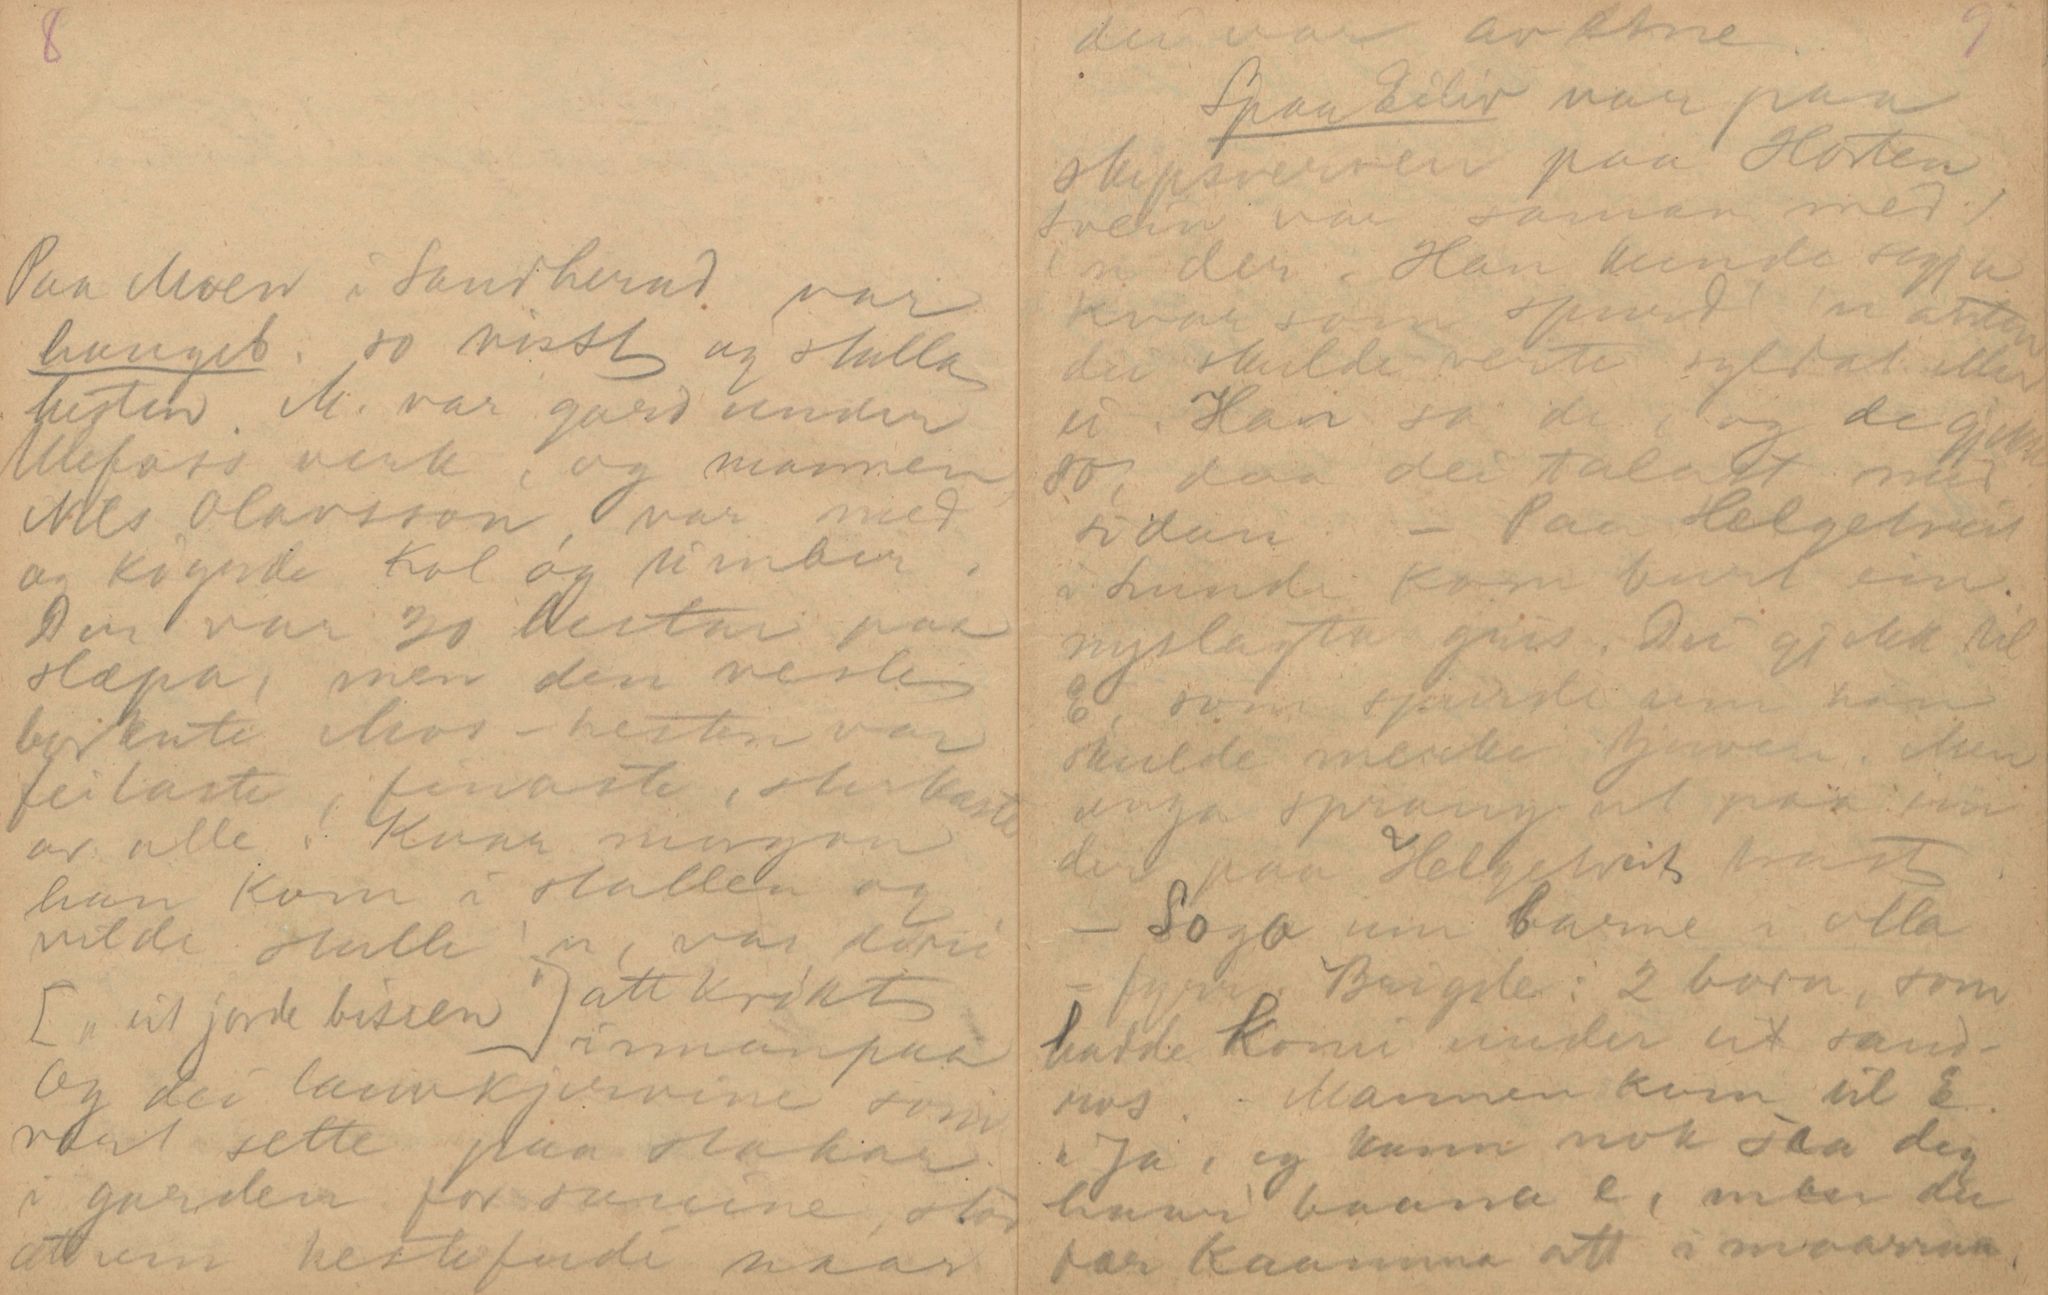 8
Paa Moen i Sandherad var
haugeb. so visst og stulla
hesten. M. var gard under
Ulefoss verk, og mannen,
Nils Olavsson, var med
og köyrde kol og timber.
Der var 30 hestar paa
slæpa, men den vesle
borkute Mos-hesten var
feitaste, finaste, sterkaste
av alle! Kvar morgon
han kom i stallen og
vilde stulle 'n, var döri
[" til jorde bissen"] att krökt
innanpaa
Og dei lauvkjervine som
vart sette paa stakar
i garden for sauine, stod
att um hestefudi naar
9
dei var avetne.
Spaa Eiliv var paa
skipsverven paa Horten
Svein var saman med
'n der. Han kunde segja
kvar som spurd' 'n anten
dei skulde verte syldat eller
ei. Han sa de, og de gjekk
so, daa dei talast med
sidan. – Paa Helgetveit
i Lunde kom burt ein
nyslagta gris. Dei gjekk til
E, som spurde um han
skulde merke tjuven. Men
auga sprang ut paa ein
der paa Helgetveit trast.
– Soga um barne i olla
– fyrr. Brigde: 2 born, som
hadde komi under eit sand-
ros. – Mannen kom til E.
"Ja, eg kann nok sea deg
haar baana e, men du
fær kaamma att i maarraa.